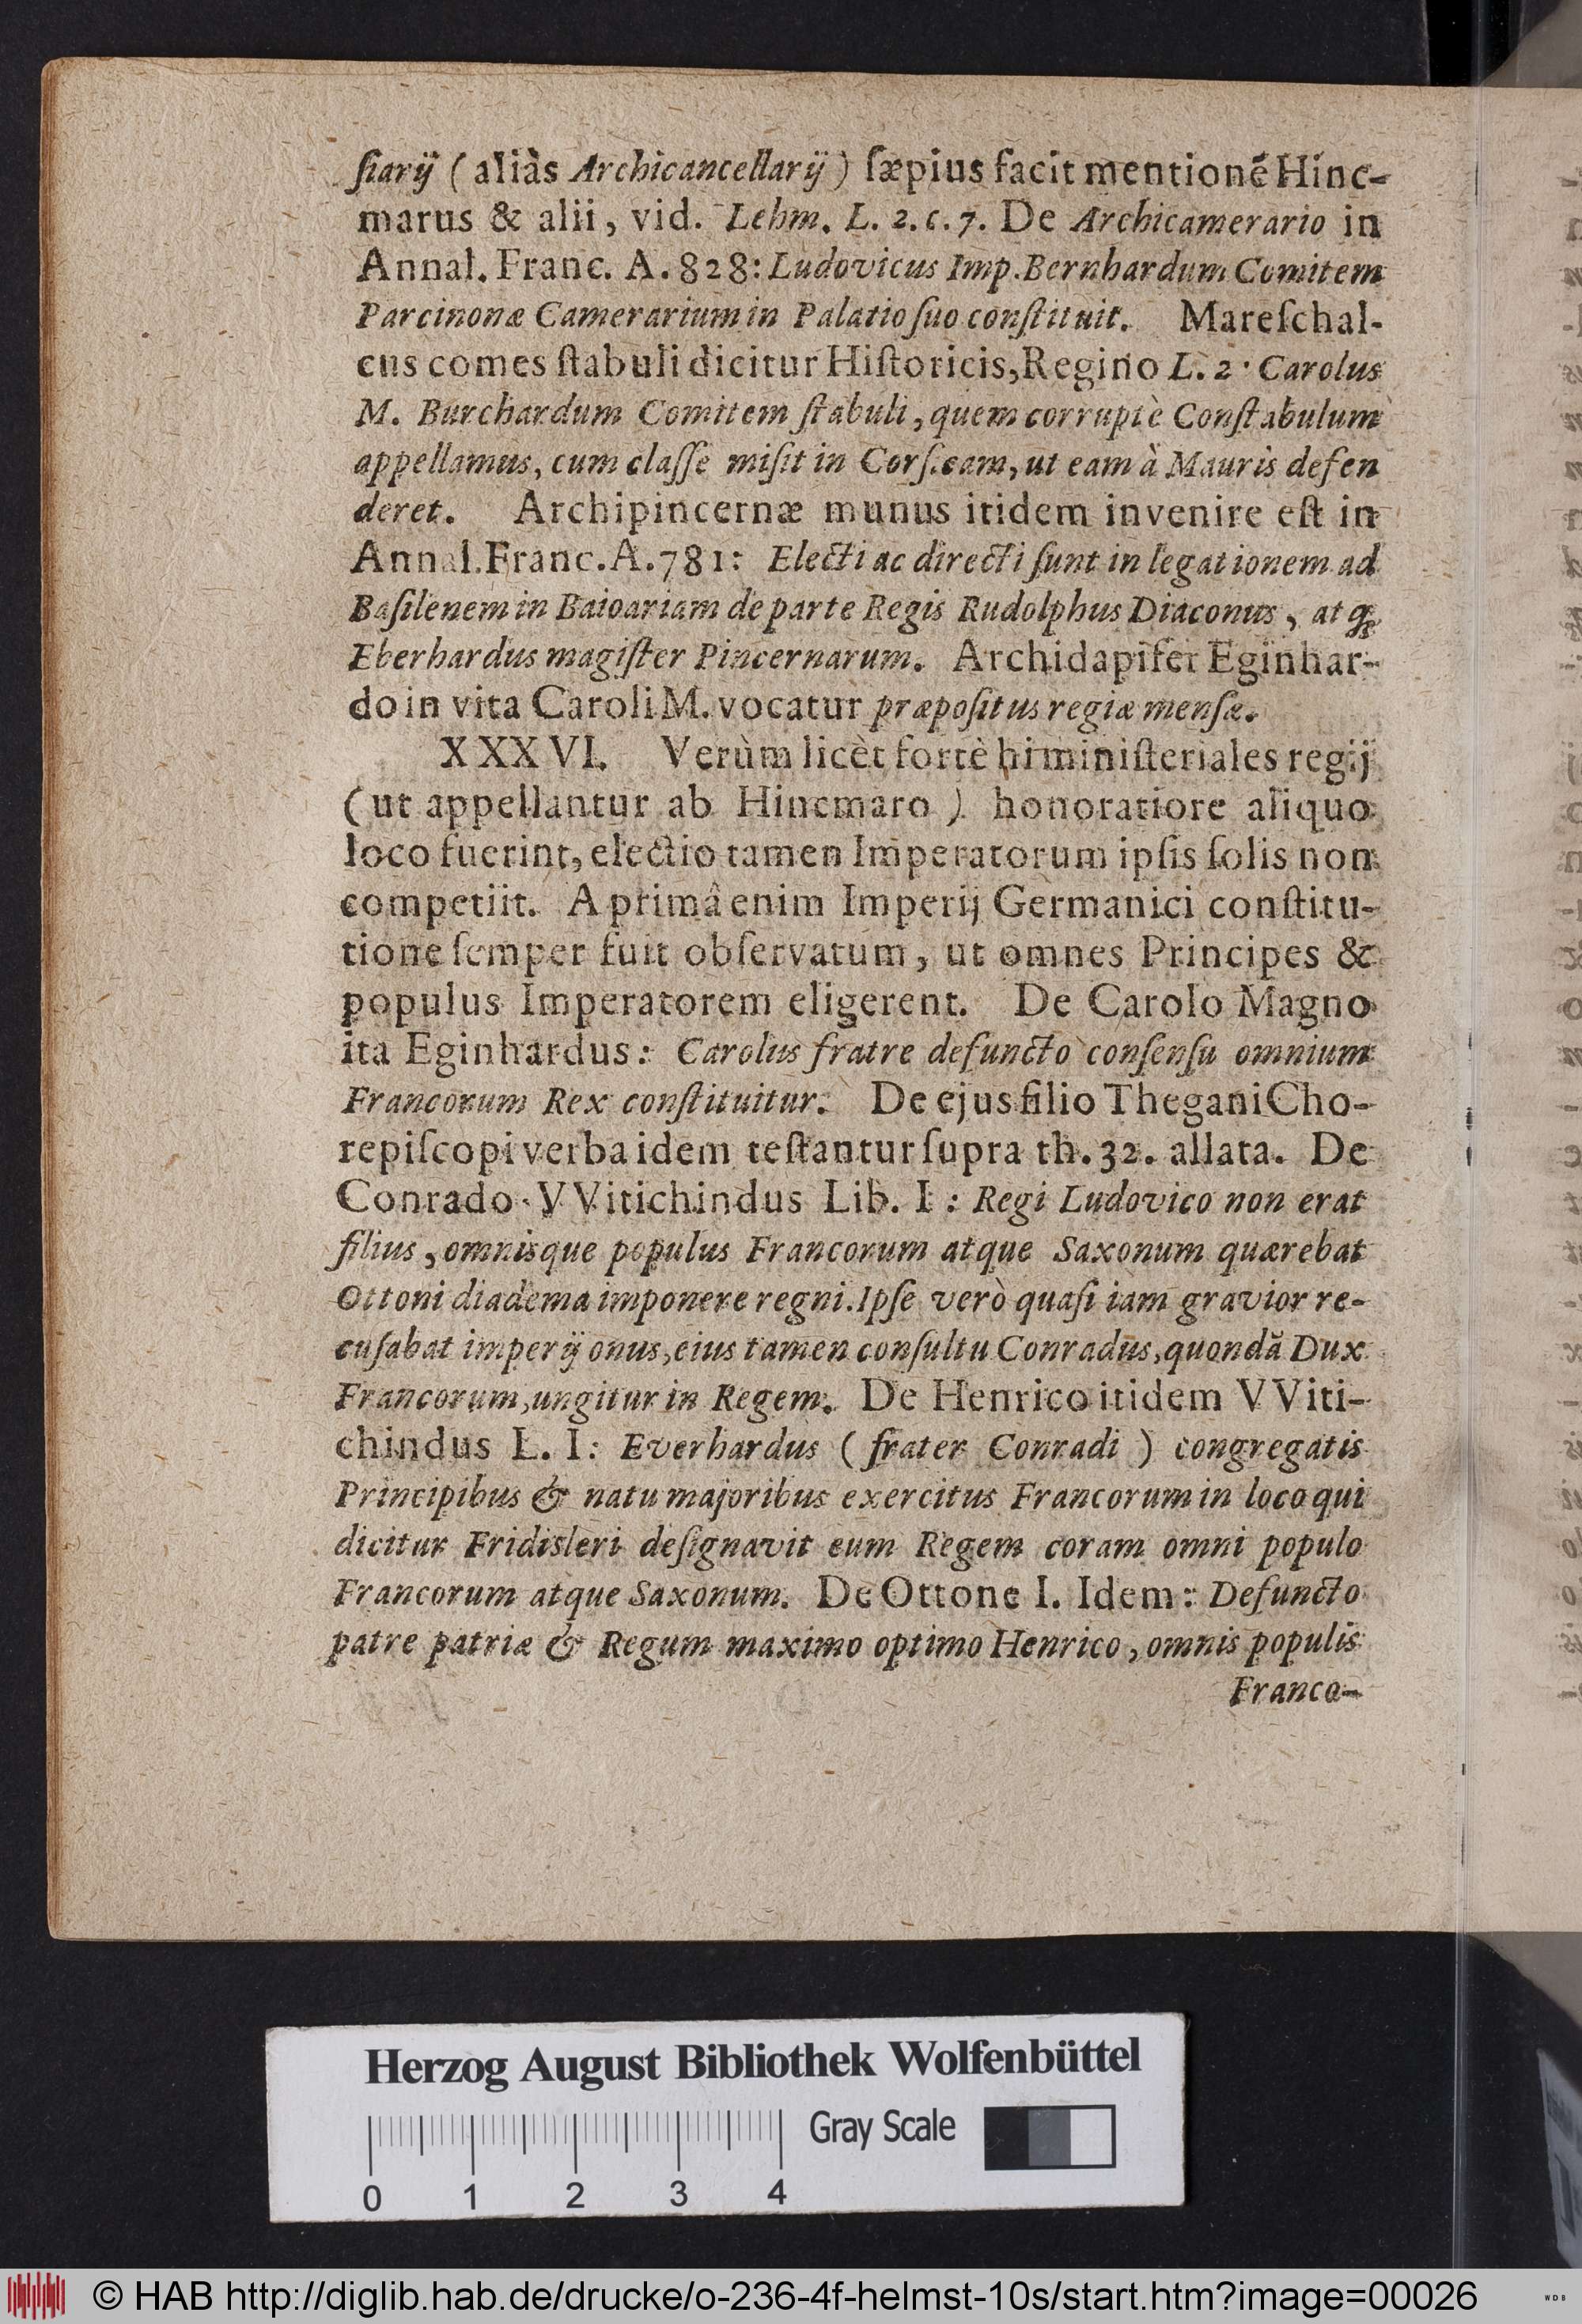 ſiarij (aliàs Archicancellarij) ſæpius facit mentionẽ Hinc-
marus & alii, vid. Lehm. L. 2. c. 7. De Archicamerario in
Annal. Franc. A. 828: Ludovicus Imp. Bernhardum Comitem
Parcinonæ Camerarium in Palatio ſuo conſtituit. Mareſchal-
cus comes ſtabuli dicitur Hiſtoricis, Regino L. 2. Carolus
M. Burchardum Comitem ſtabuli, quem corruptè Conſtabulum
appellamus, cum claſſe miſit in Corſicam, ut eam à Mauris defen
deret. Archipincernæ munus itidem invenire eſt in
Annal. Franc. A. 781: Electi ac directi ſunt in legationem ad
Baſilenem in Baioariam de parte Regis Rudolphus Diaconus, atq;
Eberhardus magiſter Pincernarum. Archidapifer Eginhar-
do in vita Caroli M. vocatur præpoſitus regiæ menſæ.
XXXVI. Verùm licèt fortè hi miniſteriales regij
(ut appellantur ab Hincmaro) honoratiore aliquo
loco fuerint, electio tamen Imperatorum ipſis ſolis non
competiit. A primâ enim Imperij Germanici conſtitu-
tione ſemper fuit obſervatum, ut omnes Principes &
populus Imperatorem eligerent. De Carolo Magno
ita Eginhardus: Carolus fratre defuncto conſenſu omnium
Francorum Rex conſtituitur. De ejus filio Thegani Cho-
repiſcopi verba idem teſtantur ſupra th. 32. allata. De
Conrado VVitichindus Lib. I: Regi Ludovico non erat
filius, omnisque populus Francorum atque Saxonum quærebat
Ottoni diadema imponere regni. Ipſe verò quaſi iam gravior re-
cuſabat imperij onus, eius tamen conſultu Conradus, quondã Dux
Francorum, ungitur in Regem. De Henrico itidem VViti-
chindus L. I: Everhardus (frater Conradi) congregatis
Principibus & natu majoribus exercitus Francorum in loco qui
dicitur Fridisleri deſignavit eum Regem coram omni populo
Francorum atque Saxonum. De Ottone I. Idem: Defuncto
patre patriæ & Regum maximo optimo Henrico, omnis populis
Franco-
Herzog August Bibliothek Wolfenbüttel
Gray Scale
0 1 2 3 4
© HAB http://diglib.hab.de/drucke/o-236-4f-helmst-10s/start.htm?image=00026